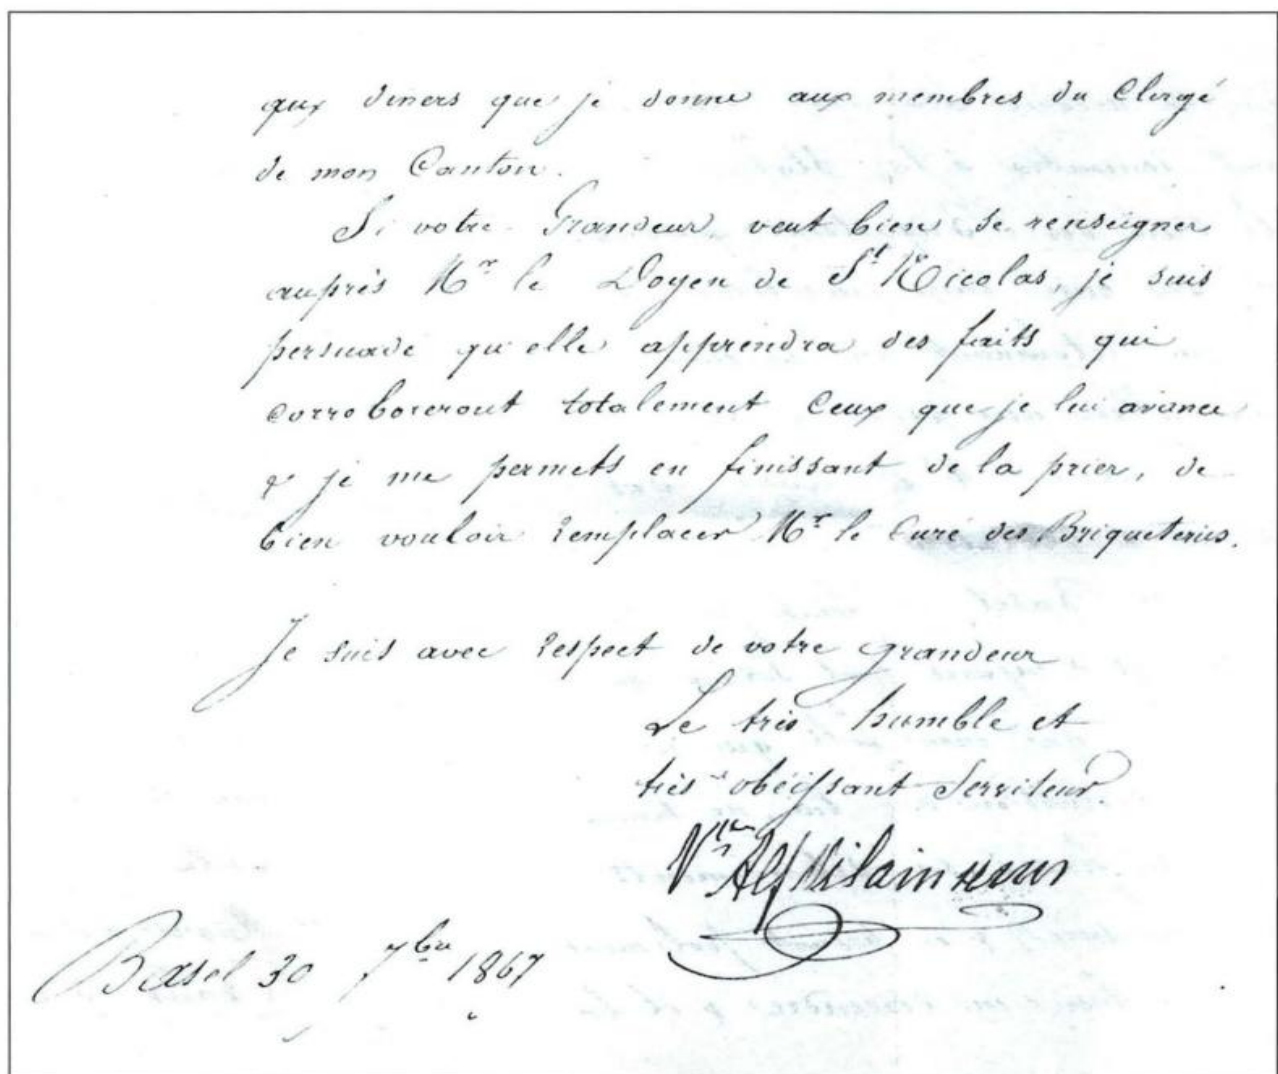 aux diners que je donne aux membres du Clergé
de mon Canton.
Si votre Grandeur veut bien se renseigner
auprès Mr le Doyen de St Nicolas, je suis
persuadé qu'elle apprendra des faits qui
corroboreront totalement ceux que je lui avance
& je me permets en finissant de la prier, de
bien vouloir remplacer Mr le Curé des Briqueteries.
Je suis avec respect de votre grandeur
Le très humble et
très obéissant Serviteur.
Vte Alf Vilain
Basel 30 7bre 1867